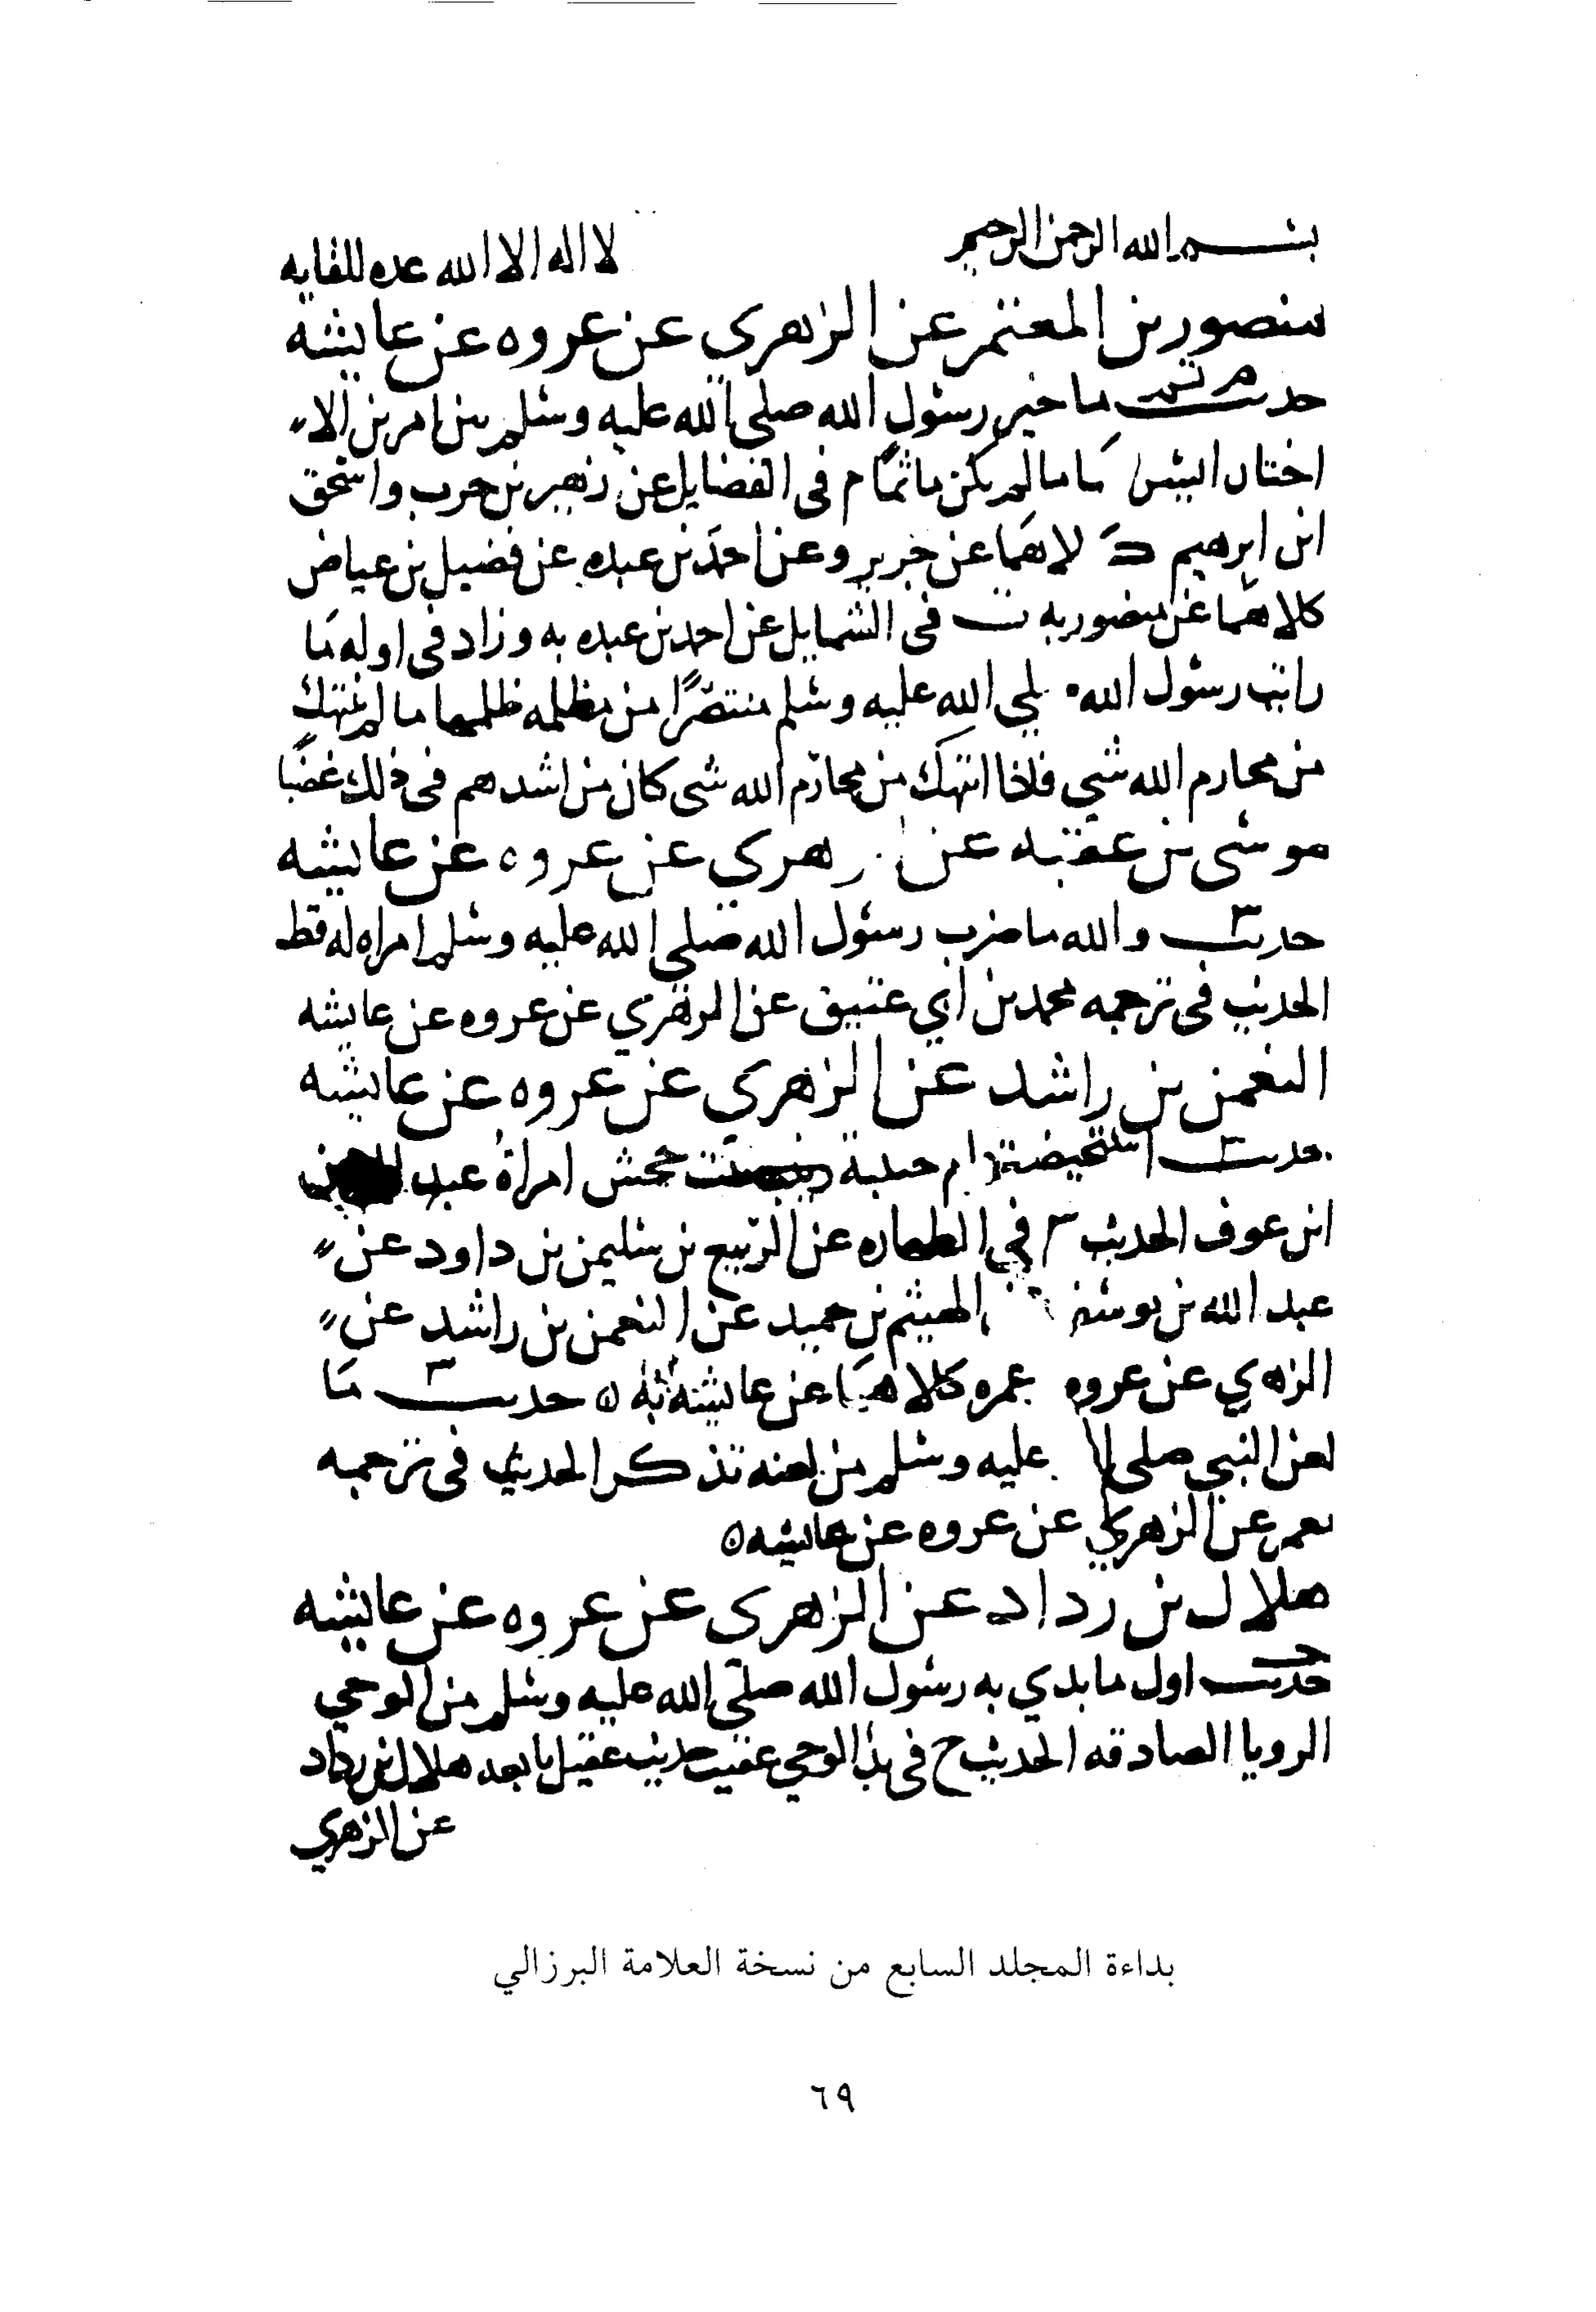 بسم الله الرحمن الرحيم لا اله الا الله عده للقايه
منصور بن المعتمر عن الزهري عن عروه عن عايشه
حديث م تم ما خير رسول الله صلى الله عليه وسلم بين امرين الا
اختار ايسر ما ما لم يكن ماثما م في الفضايل عن زهير بن حرب واسحق
ابن ابرهيم لاهما عن جرير وعن احمد بن عبده عن فضيل بن عياض
كلاهما عن منصور به ت في الشمايل عن احمد بن عبده به وزاد في اوله ما
رايت رسول الله لى الله عليه وسلم منتصرا من مظلمه ظلمها ما لم ينتهك
من محارم الله شي فاذا انتهك من محارم الله شي كان من اشدهم في ذلك غضبا
موسى بن عقبه عن ا زهري عن عروه عن عايشه
حديث س والله ما ضرب رسول الله صلى الله عليه وسلم امراه له قط
الحديث في ترجمه محمد بن ابي عتيق عن الزهري عن عروه عن عايشه
النعمن بن راشد عن الزهري عن عروه عن عايشه
حديث س استحيضت ام حبيبة جحش امراة عبد
ابن عوف الحديث س في الطهاره عن الربيع بن سليمن بن داود عن
عبد الله بن يوسف الهيثم بن حميد عن النعمن بن راشد عن
الزهري عن عروه عمره كلاهما عن عايشه به ه حديث س ما
لعن النبي صلى ا عليه وسلم من لعنه تذكر الحديث في ترجمه
معمر عن الزهري عن عروه عن عايشه ه
هلال بن رداد عن الزهري عن عروه عن عايشه
حديث خ اول ما بدي به رسول الله صلى الله عليه وسلم من الوحي
الرويا الصادقه الحديث خ في بدا الوحي عقيب حديث عقيل تابعه هلال بن رداد
عن الزهري
بداءة المجلد السابع من نسخة العلامة البرزالي
٦٩